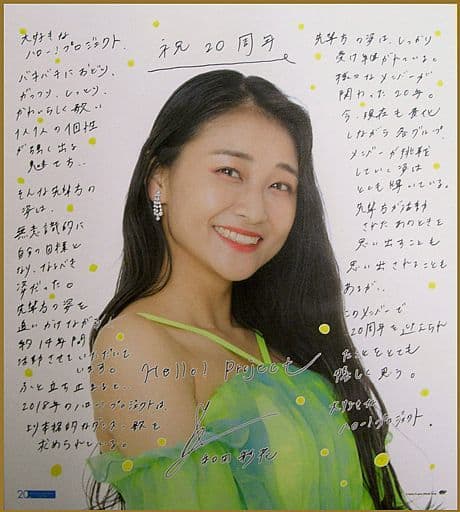 祝 20周年
大好きな
ハロー!プロジェクト。
バキバキにおどり、
ガッツリ、しっとり、
かわいらしく歌い
1人1人の個性
が強く出る
そんな先輩方の
姿は、
無意識的に
自分の目標と
なり、なるべき
姿だった。
先輩方の姿を
追いかけながら
約14年間
活動させていただいて
います。
ふと立ち止まると、
2018年のハロー!プロジェクトは、
より本格的なダンス、歌を
求められている。
先輩方の姿は、しっかり
受け継がれている。
様々なメンバーが
関わった20年。
今、現在も進化
しながら各グループ、
メンバーが挑戦
していく姿は
とても輝いている。
先輩方が活動
されたあのときを
思い出すことも
思い出されることも
あるが、
このメンバーで
20周年を迎えられ
たことをとても
嬉しく思う。
大好きな
ハロー!プロジェクト。
Hello! Project
和田彩花
20